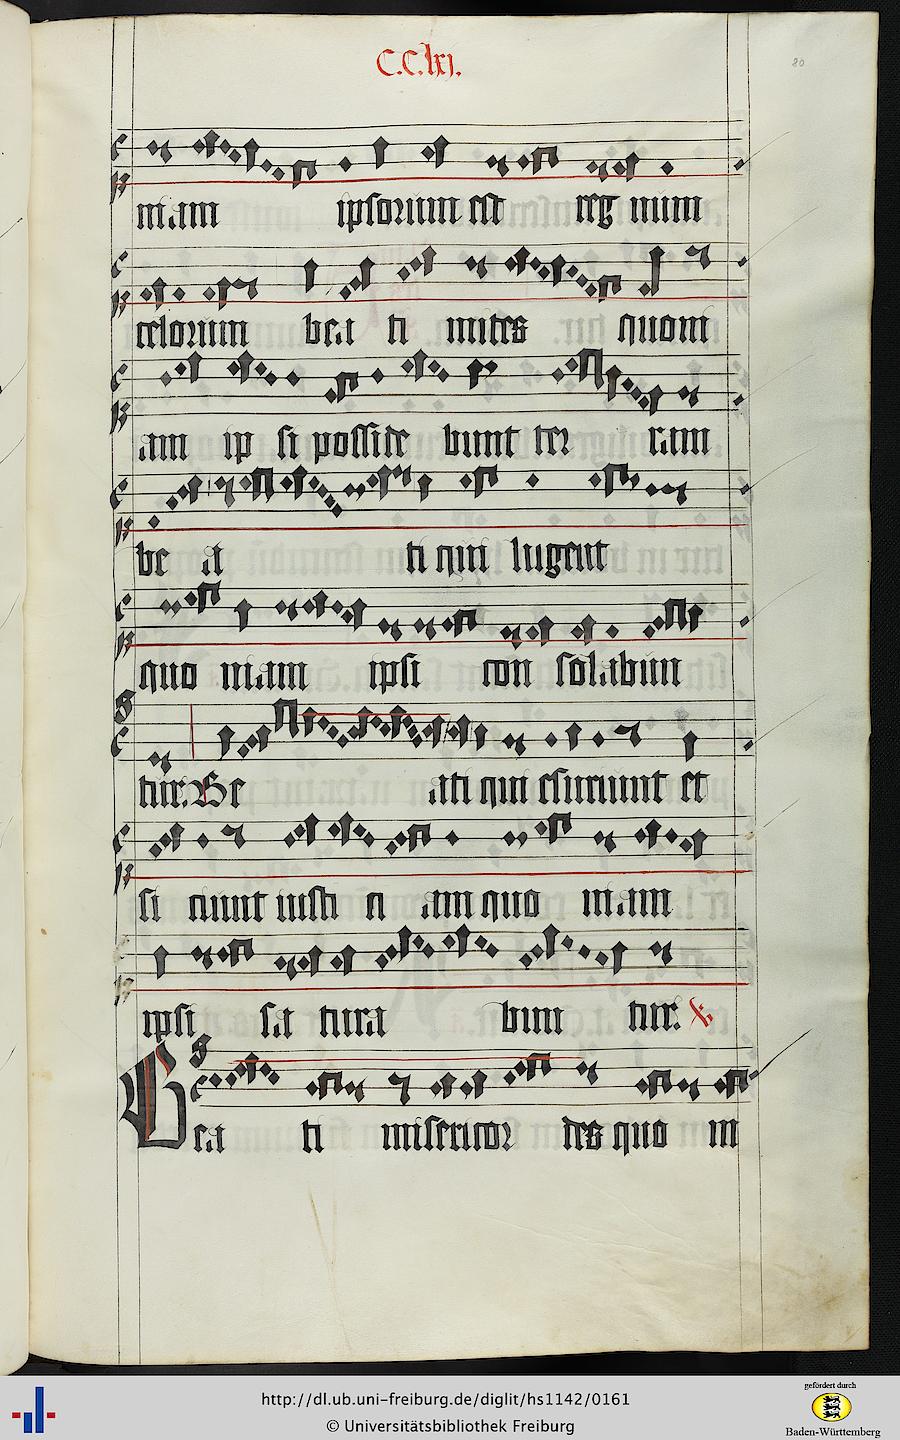 C.C.lxj.
80
niam ipsorum est reg num
celorum bea ti mites quoni
am ip si posside bunt ter ram
be a ti qui lugent
quo niam ipsi con solabun
tur. Be ati qui esuriunt et
si ciunt iusti ci am quo niam
ipsi sa tura bun tur.
Bea ti misericor des quo ni
http://dl.ub.uni-freiburg.de/diglit/hs1142/0161
© Universitätsbibliothek Freiburg
gefördert durch
Baden-Württemberg